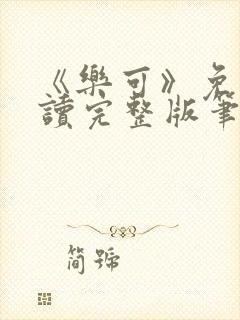 《樂可》免
讀完整版筆
簡號